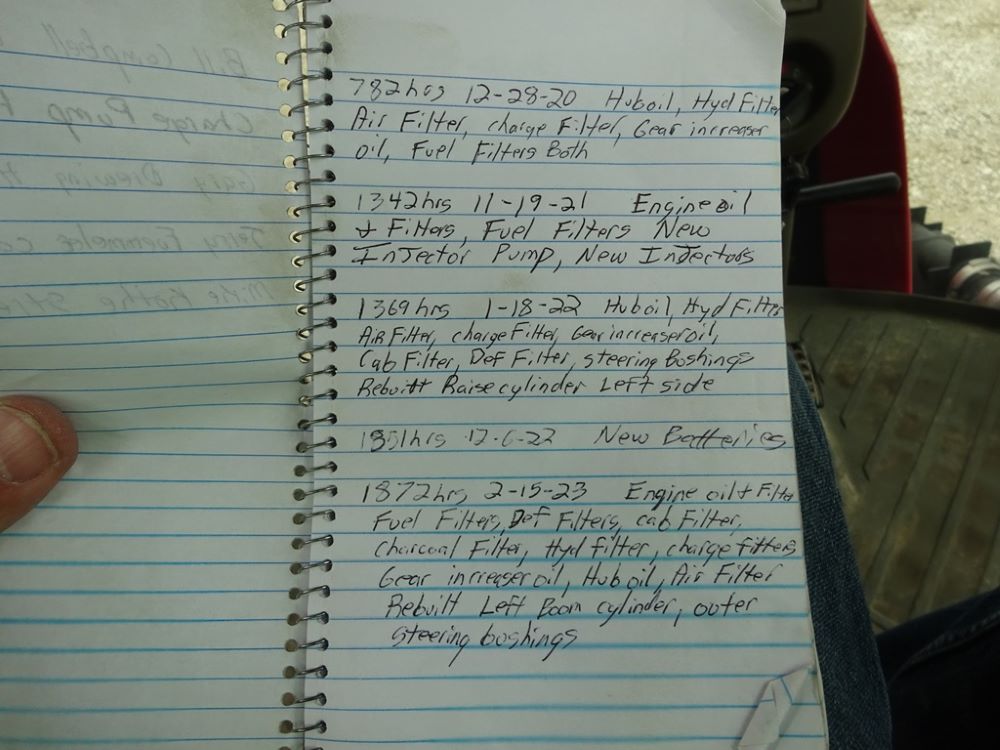 Bill Campbell
Charge Pump
Gary
Jerry
Mike
782hrs 12-28-20 Huboil, Hyd Filter
Air Filter, charge Filter, Gear increaser
oil, Fuel Filters Both
1342hrs 11-19-21 Engine oil
+ Filters, Fuel Filters New
InJector Pump, New InJectors
1369hrs 1-18-22 Huboil, Hyd Filter
Air Filter, charge Filter, Gear increaser oil,
Cab Filter, Def Filter, steering Boshings
Rebuilt Raise cylinder Left side
1851hrs 12-6-22 New Batteries
1872hrs 2-15-23 Engine oil + Filter
Fuel Filters, Def Filters, cab Filter,
Charcoal Filter, Hyd filter, charge filters
Gear increaser oil, Hub oil, Air Filter
Rebuilt Left Boom cylinder, outer
steering boshings